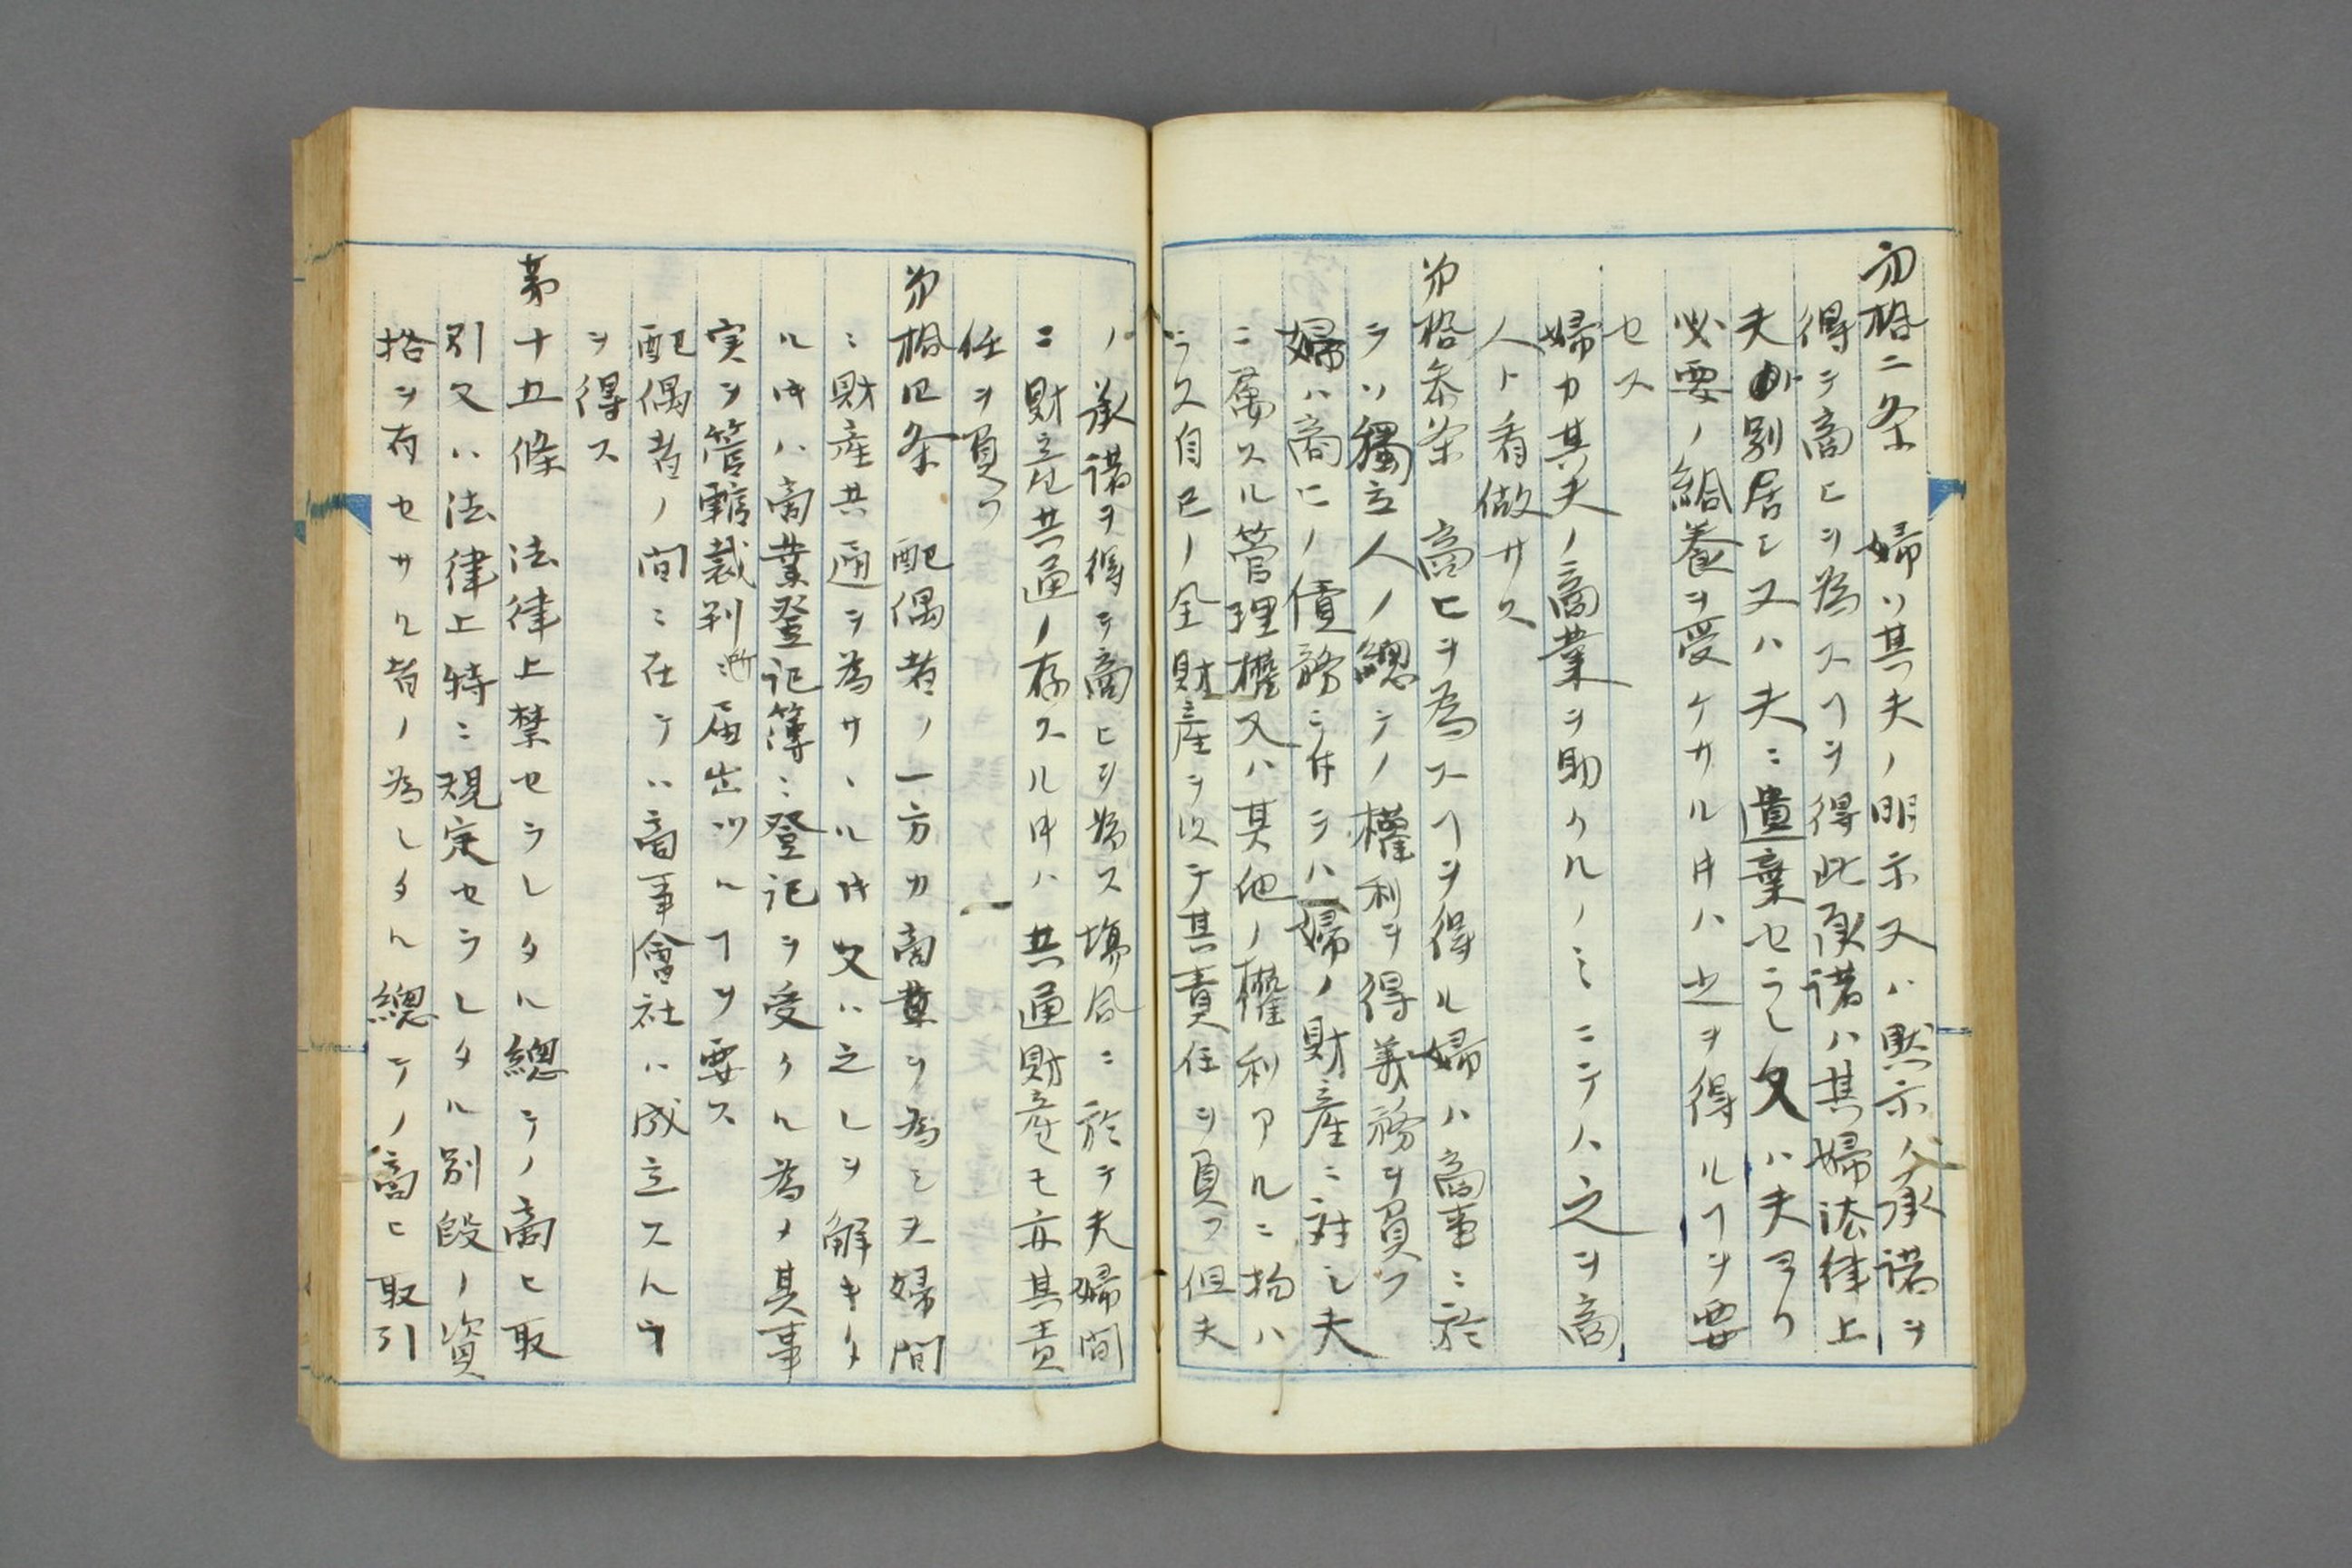 第拾二条　婦ハ其夫ノ明示又ハ黙示ノ承諾ヲ
得テ商ヒヲ為スヿヲ得此承諾ハ其婦法律上
夫ト別居シ又ハ夫ニ遺棄セラレ又ハ夫ヨリ
必要ノ給養ヲ受ケサル井ハ之ヲ得ルヿヲ要
セス
婦カ其夫ノ商業ヲ助クルノミニテハ之ヲ商
人ト看做サス
第拾参条　商ヒヲ為スヿヲ得ル婦ハ商事ニ於
テハ獨立人ノ總テノ權利ヲ得義務ヲ負フ
婦ハ商ヒノ債務ニ付テハ婦ノ財産ニ対シ夫
ニ属スル管理權又ハ其他ノ權利アルニ拘ハ
ラス自己ノ全財産ヲ以テ其責任ヲ負フ但夫
ノ承諾ヲ得テ商ヒヲ為ス塲合ニ於テ夫婦間
ニ財産共通ノ存スル井ハ共通財産モ亦其責
任ヲ負フ
第拾四条　配偶者ノ一方カ商業ヲ為シ夫婦間
ニ財産共通ヲ為サヽル井又ハ之レヲ解キタ
ル井ハ商業登記簿ニ登記ヲ受クル為メ其事
実ヲ管轄裁判所届出ツルヿヲ要ス
配偶者ノ間ニ在テハ商事會社ハ成立スルヿ
ヲ得ス
第十五條　法律上禁セラレタル總テノ商ヒ取
引又ハ法律上特ニ規定セラレタル別段ノ資
挌ヲ有セサル者ノ為シタル總テノ商ヒ取引